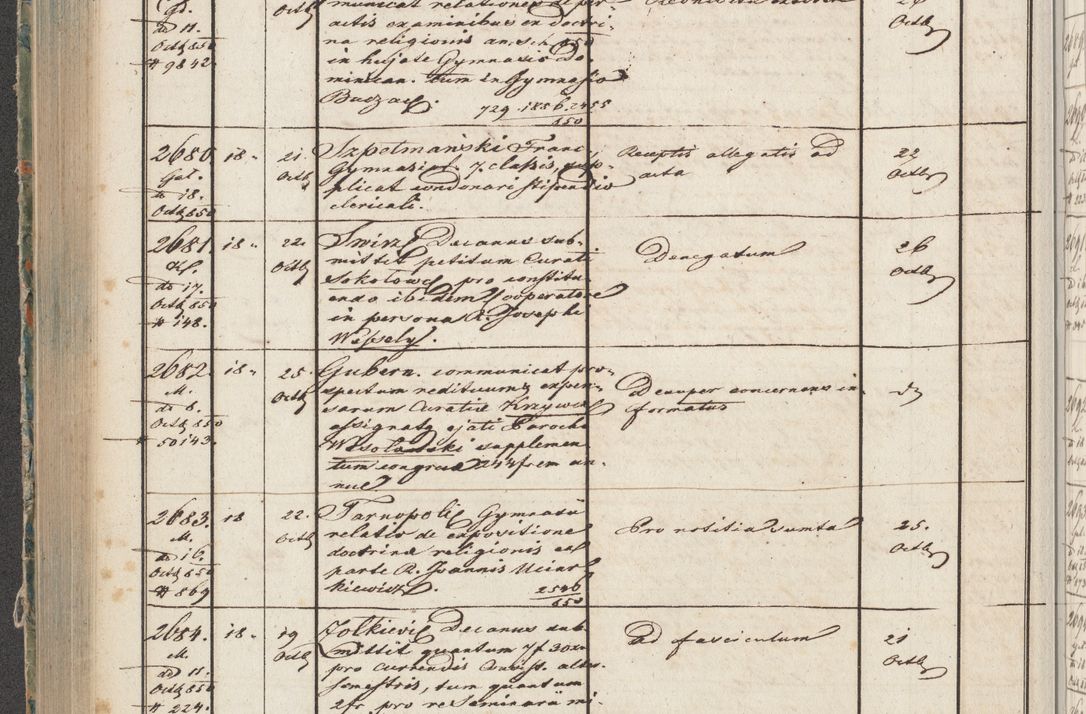 Octb
Octb 850
# 9842
actis examinibus ex doctri-
na religionis an. sch. 850
in hujate Gymnasio Do-
minican. tum in Gymnasio
Buczac.
729. 1856. 2455
850
26
Octb
2680
Gal.
dd 18.
Octb 850
18 "
21.
Octb
Szpotmański Franc.
Gymnasii 7. classis, sup-
plicat condonari stipendio
clericali.
Receptis allegatis ad
acta
22
Octb
2681.
dd 17.
Octb 850
# 148.
18 "
22.
Octb
Swirz. Decanus sub-
mittit petitum Curati
Sokołowe pro constitu-
endo ibidem Cooperatore
in persona R. Josephi
Wessely.
Denegatum
26
Octb
2682.
M.
dd 8.
Octb 850
# 50143.
18 "
25.
Octb
Gubern. communicat pro-
spectum redituum & expen-
sarum Curatiae Krzywcze
assignatq ojati Parocho
Wesołowski supplemen-
tum congruae 244 f. cm an-
nue
Decuper concernens in-
formatus
2683.
M.
dd 16.
Octb 850
# 869
18
22.
Octb
Tarnopoli Gymnasii
relatio de expositione
doctrinae religionis ex
parte R. Joannis Uciar-
kiewicz.
2546
850
Pro notitia sumta
25.
Octb
2684.
M.
dd 11.
Octb 850
# 224.
18 "
19
Octb
Zolkievi Decanus sub-
mittit quantum 7 f 30 xr
pro currendis Consist. alter.
semestris, tum quantum
2 fr. pro re Seminarii mi-
Ad fasciculum
21
Octb